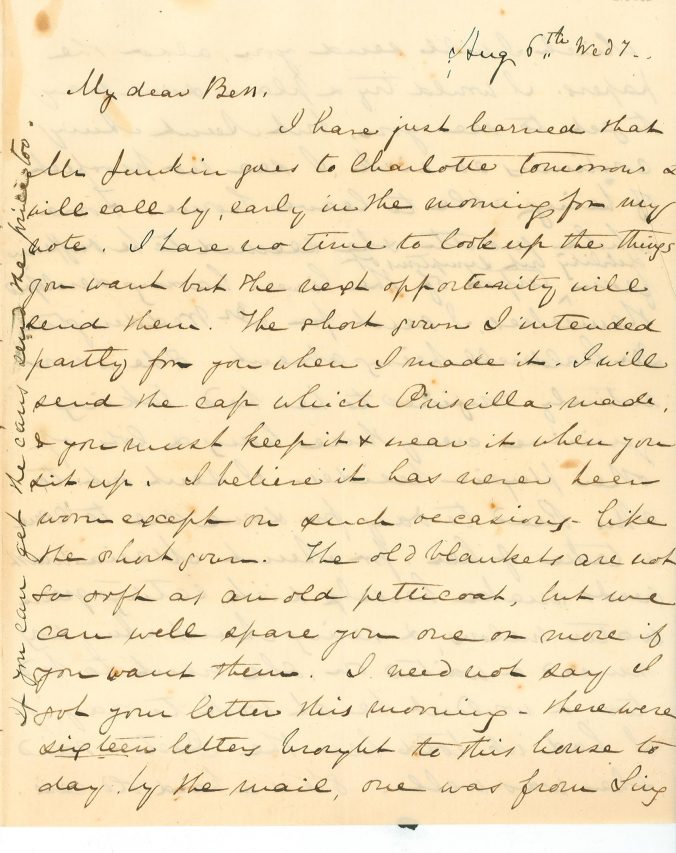 Aug 6th Wed7.
My dear Bess.
I have just learned that
Mr Junkin goes to Charlotte tomorrow &
will call by, early in the morning for my
note. I have no time to look up the things
you want but the next opportunity will
send them. The short gown I intended
partly for you when I made it. I will
send the cap which Priscilla made,
& you must keep it & wear it when you
sit up. I believe it has never been
worn except on such occasions - like
the short gown. The old blankets are not
so soft as an old petticoat, but we
can well spare you one or more if
you want them. I need not say I
got your letter this morning - there were
sixteen letters brought to this house to
day by the mail, one was from Sing
If you can get the cans send the price too.